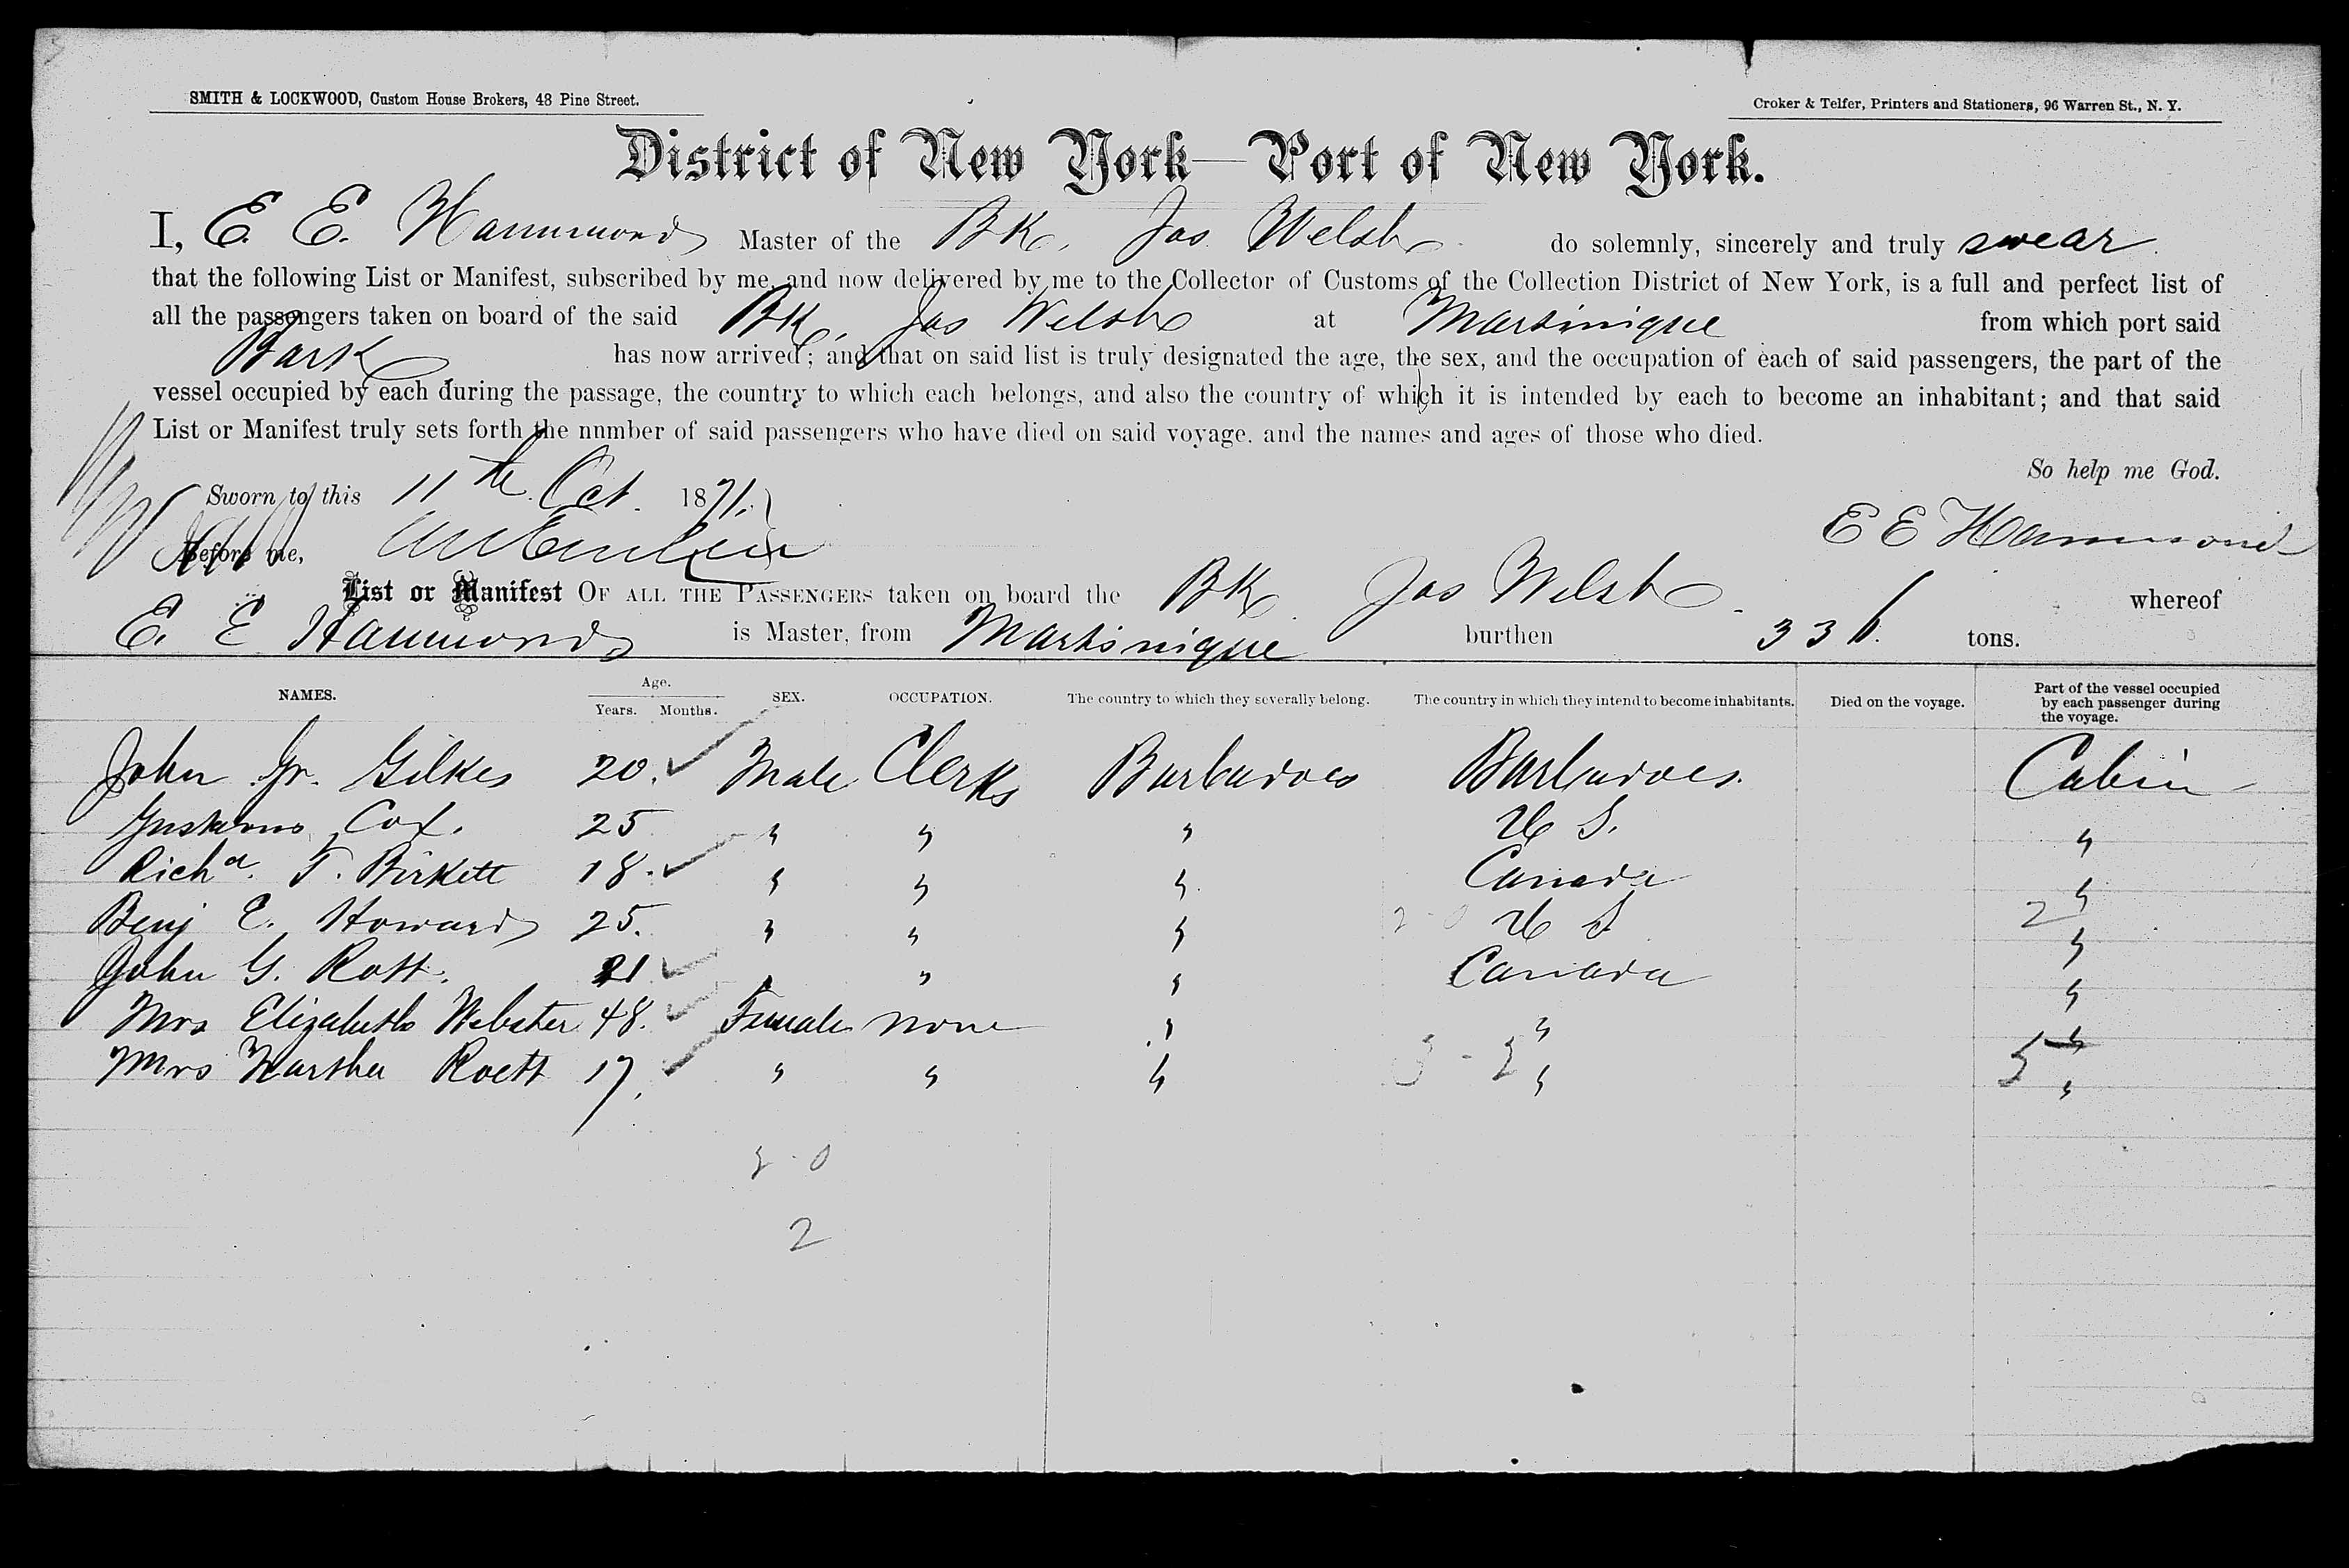 SMITH & LOCKWOOD, Custom House Brokers, 43 Pine Street.
Croker & Telfer, Printers and Stationers, 96 Warren St., N. Y.
District of New York—Port of New York.
I, E. E. Hammond Master of the Bk. Jas Welsh do solemnly, sincerely and truly swear
that the following List or Manifest, subscribed by me, and now delivered by me to the Collector of Customs of the Collection District of New York, is a full and perfect list of
all the passengers taken on board of the said Bk. Jas Welsh at Martinique from which port said
Bark has now arrived; and that on said list is truly designated the age, the sex, and the occupation of each of said passengers, the part of the
vessel occupied by each during the passage, the country to which each belongs, and also the country of which it is intended by each to become an inhabitant; and that said
List or Manifest truly sets forth the number of said passengers who have died on said voyage, and the names and ages of those who died.
So help me God.
Sworn to this 11th Oct. 1871.
E E Hammond
Before me,
List or Manifest OF ALL THE PASSENGERS taken on board the Bk Jas Welsh whereof
E. E Hammond is Master, from Martinique burthen 336. tons.
NAMES. Age. Years. Months. SEX. OCCUPATION. The country to which they severally belong. The country in which they intend to become inhabitants. Died on the voyage. Part of the vessel occupied by each passenger during the voyage.
John Gilkes 20. Male Clerks Barbadoes Barbadoes. Cabin
Cox. 25 " " " U S. "
Richd. T. Birkett 18. " " " Canada "
Benj E. Howard 25. " " " 2-0 U S 2 "
John G. Rott. 21 " " " Canada "
Mrs Elizabeth Webster 48. Female none " " "
Mrs Martha Roett 17. " " " " 5 "
2